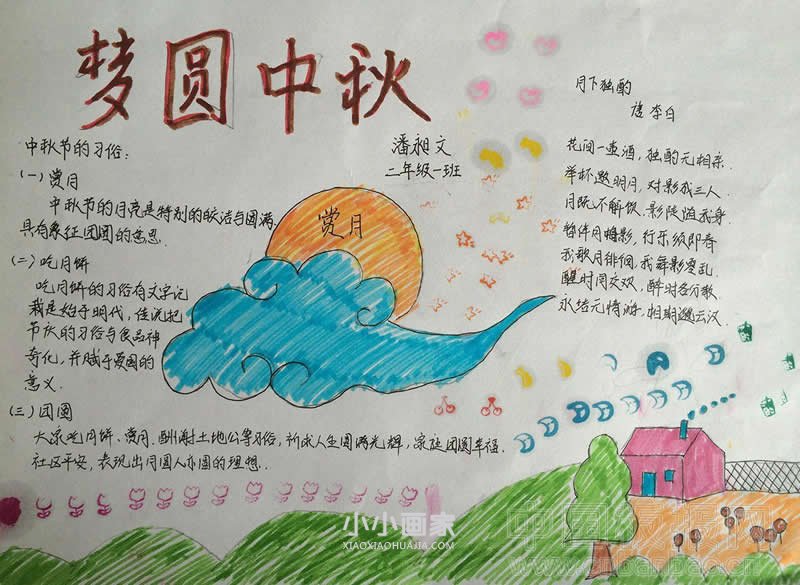 梦圆中秋
潘昶文
二年级一班
中秋节的习俗：
(一) 赏月
中秋节的月亮是特别的皎洁与圆满.
具有象征团圆的意思.
(二) 吃月饼
吃月饼的习俗有文字记
我是始于明代, 佳流把
节庆的习俗与食品神
奇化, 并赋于爱国的
意义.
(三) 团圆
大家吃月饼、赏月、酬谢土地公等习俗, 祈求人生圆满光辉, 家庭团圆幸福.
社区平安, 表现出月圆人亦圆的理想.
赏月
月下独酌
唐 李白
花间一壶酒, 独酌无相亲.
举杯邀明月, 对影成三人.
月既不解饮, 影徒随我身.
暂伴月将影, 行乐须即春
我歌月徘徊, 我舞影零乱.
醒时同交欢, 醉时各分散.
永结无情游, 相期邈云汉.
小小画家
XIAOXIAOHUAJIA.COM